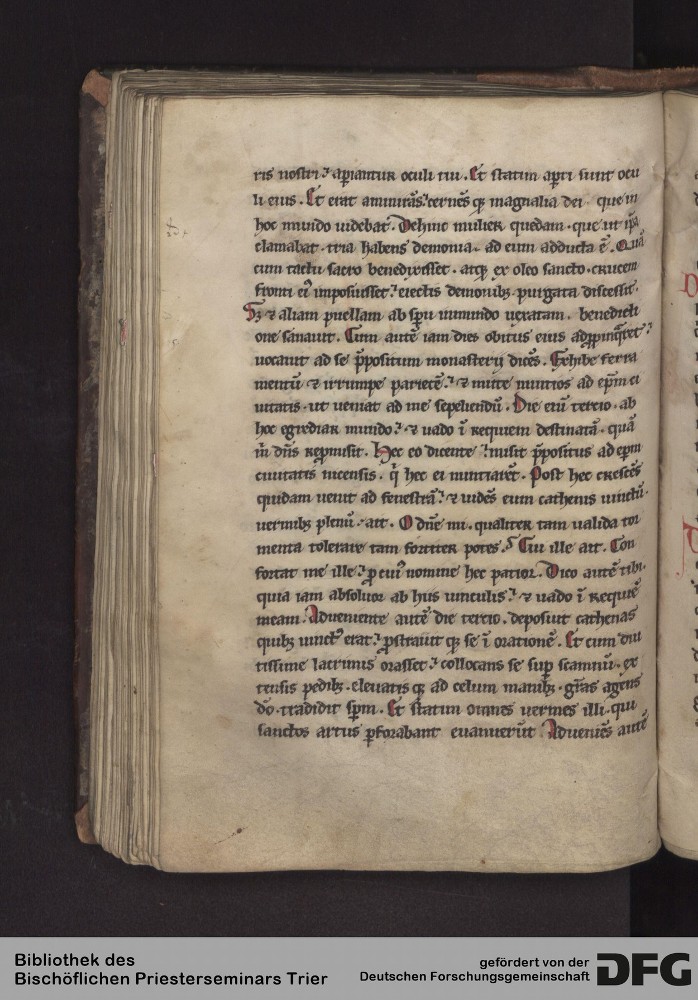 ris nostri ; apiantur oculi tui . Et statim apti sunt ocu
li eius . Et erat ammirãs ; cernẽs q; magnalia dei que in
hoc mundo uidebat . Dehinc mulier quedam . que ut ip̃a
clamabat . tria habens demonia . ad eum adducta ẽ . Quã
cum tactu sacro benedixisset . atq; ex oleo sancto . crucem
fronti ei' imposuisset ; eiectis demonib; purgata discessit .
S; ⁊ aliam puellam ab sp̃u inmundo uexatam . benedicti
one sanauit . Cum autẽ iam dies obitus eius adp̃pinq̃ret ;
uocauit ad se p̃positum monasterij dicẽs . Exhibe ferra
mentũ ⁊ irrumpe parietẽ ; ⁊ mitte nuntios ad ep̃m ci
uitatis . ut ueniat ad me sepeliendũ . Die eni tercio . ab
hoc egrediar mundo ; ⁊ uado ĩ requiem destinatã . quã
m̃ dñs repromisit . Hec eo dicente ; misit p̃positus ad epm
ciuitatis nicensis . q̃ hec ei nuntiarẽt . Post hec crescẽs
quidam uenit ad fenestrã ; ⁊ uidẽs eum cathenis uinctũ .
uermib; plenũ . ait . O dñe mi . qualiter tam ualida tor
menta tolerare tam fortiter potes ? Cui ille ait . Con
fortat me ille ; p cui' nomine hec patior . Dico autẽ tibi .
quia iam absoluor ab hijs uinculis ; ⁊ uado ĩ requiẽ
meam . Adueniente autẽ die tercio . deposuit cathenas
quib; uinct' erat ; p̃strauit q; se ĩ orationẽ . Et cum diu
tissime lacrimis orasset ; collocans se sup scamnũ . ex
tensis pedib; . eleuatis q; ad celum manib; . gr̃as agens
dõ . tradidit sp̃m . Et statim omnes uermes illi . qui
sanctos artus pforabant euanuerũt Adueniẽs autẽ
Bibliothek des
Bischöflichen Priesterseminars Trier
gefördert von der
Deutschen Forschungsgemeinschaft
DFG